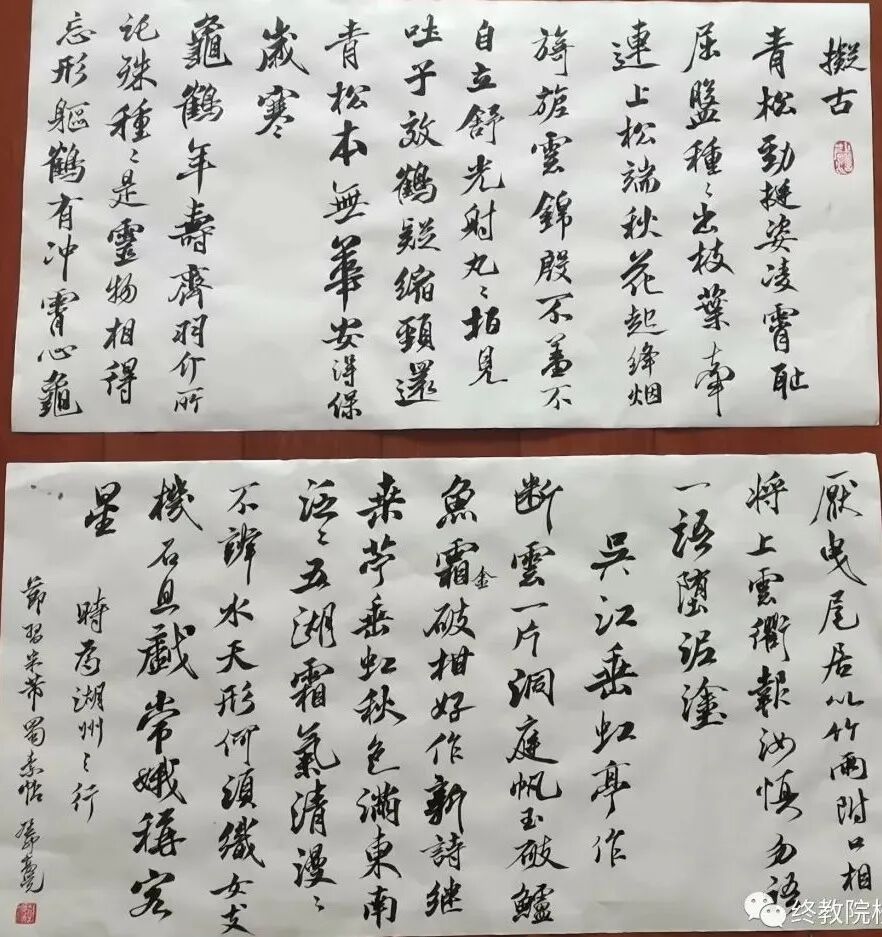 擬古
青松勁挺姿凌霄恥
屈盤種〻出枝葉牽
連上松端秋花起絳烟
旖旎雲錦殷不羞不
自立舒光射丸〻柏見
吐子效鶴疑縮頸還
青松本無華安得保
歲寒
龜鶴年壽齊羽介所
託殊種〻是靈物相得
忘形軀鶴有冲霄心龜
厭曳尾居以竹兩附口相
将上雲衢報汝慎勿語
一語堕泥塗
吳江垂虹亭作
断雲一片洞庭帆玉破鱸
魚霜金破柑好作新詩继
桑苧垂虹秋色滿東南
泛〻五湖霜氣清漫〻
不辨水天形何須織女支
機石且戲常娥稱客
星
時為湖州之行
節習米芾蜀素帖
终教院